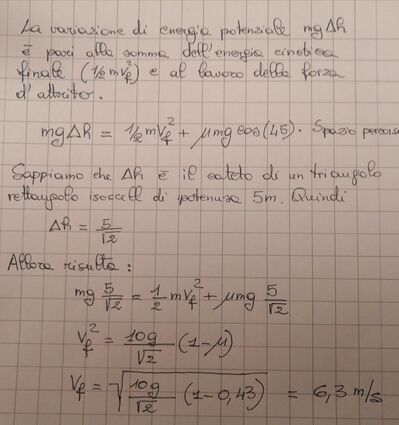 La variazione di energia potenziale mgΔh
è pari alla somma dell'energia cinetica
finale (1/2 mVf²) e al lavoro della forza
d'attrito.
mgΔh = 1/2 mVf² + μmg cos(45) · Spazio percorso
Sappiamo che Δh è il cateto di un triangolo
rettangolo isoscell di ipotenusa 5m. Quindi
Δh = 5/√2
Allora risulta:
mg 5/√2 = 1/2 mVf² + μmg 5/√2
Vf² = 10g/√2 (1-μ)
Vf = √(10g/√2 (1-0,43)) = 6,3 m/s